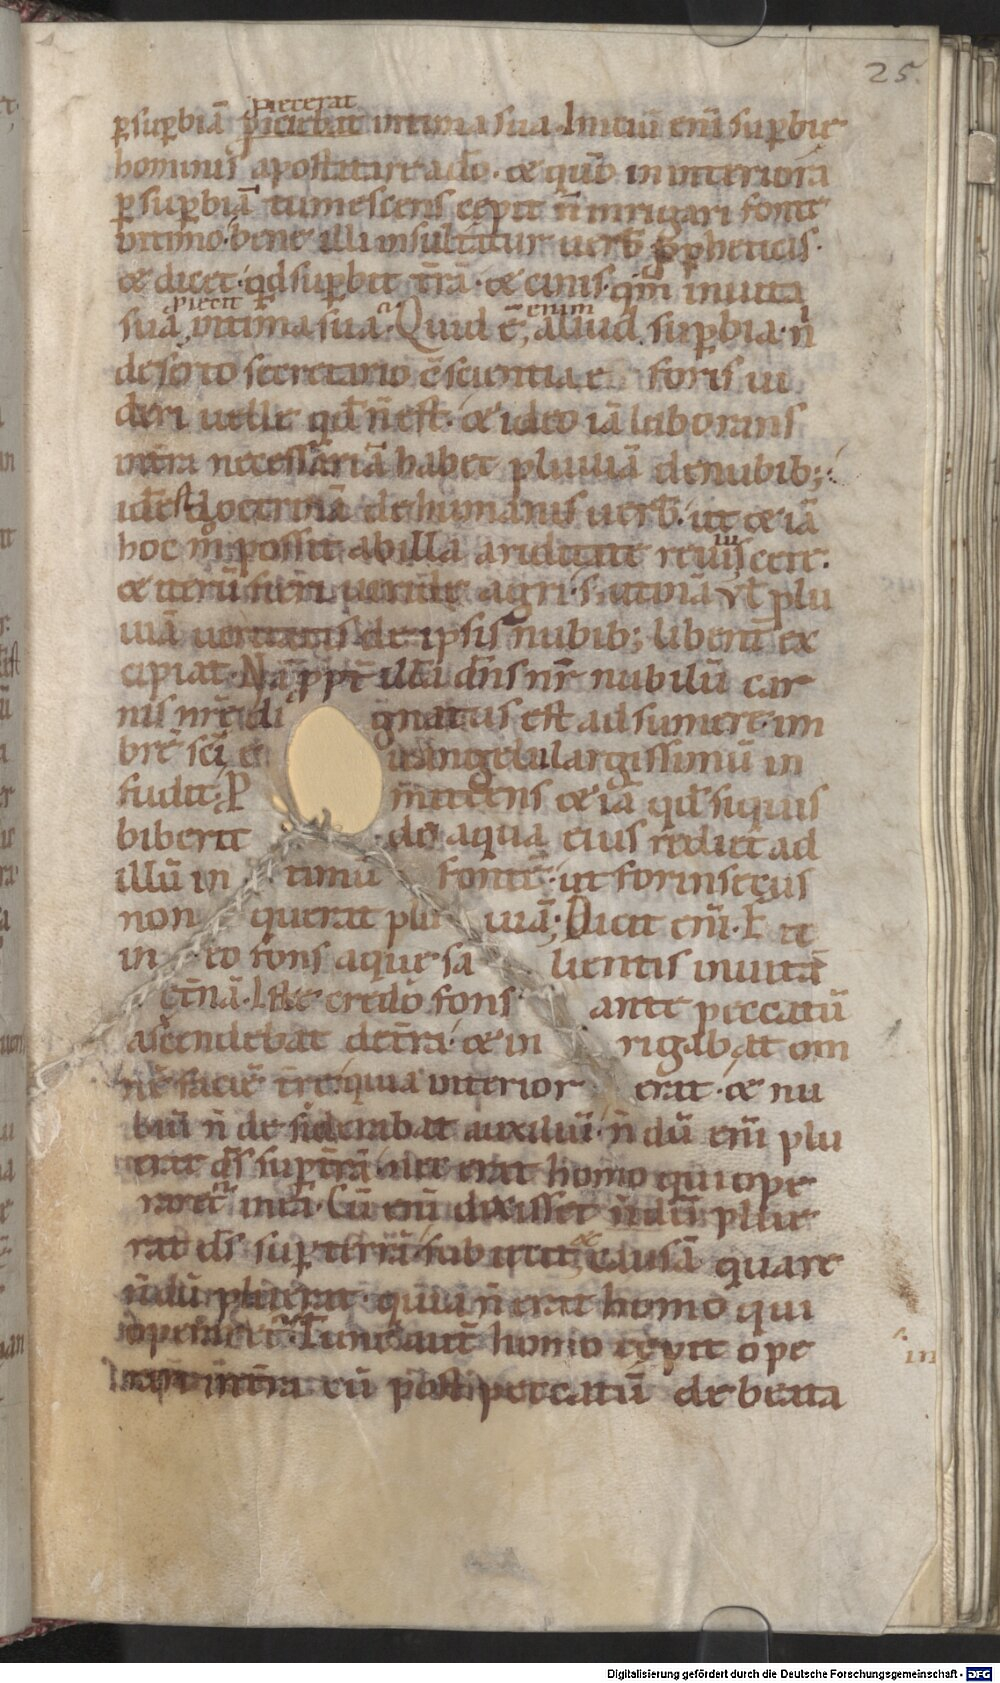 25.
piecerat
ꝑsuꝑbiā piciebat intima sua. Initiū eni͂ suꝑbie
hominis apostatare a dō. & quō in interiora
ꝑ suꝑbiā tumescens cępit n̄ inrigari fonte
intimo. bene illi insultatur uerb̄ ꝓpheticis.
& dicet. qd suꝑbit t̄rā. & cinis. qm̄ in uita
piecit enim
sua intima sua. Quid ē aliud suꝑbia. n̄
deserto secretario ɔ̄scientiae foris ui
deri uelle qd̄ n̄ est. & ideo iā laborans
in t̄ra necessariā habet pluuiā de nubib;
id est doctrinā de humanis uerb̄. ut & iā
hoc m̊ possit ab illa ariditate reuiuiscere.
& iterū fieri uiride agri. s; utinā ł plu
uiā ueritatis de ipsis nubib; libent̄ ex
cipiat. Nā ꝓpt̄ illā dn̄s nr̄ nubilū car
nis nr̄ę di gnatus est adsumere. im
brē sci e uangelii largissimū in
fudit. P mittens & iā qd̄ siquis
biberit de aqua eius rediet ad
illū in timū fontē. ut forinsecus
non querat plu uiā; Dicit eni͂. F et
in eo fons aque sa lientis in uitā
ęt̄nā. Iste credo fons ante peccatū
ascendebat de t̄ra. & in rigabat om
nē faciē t̄re. quia interior erat. & nu
biū n̄ desiderabat auxiliū. n̄dū eni͂ plu
erat ds̄ suꝑ t̄rā. nec erat homo qui ope
raret̄ in ea. Cū eni͂ dixisset n̄dū plue
rat ds̄ suꝑ terrā. subiecit & causā quare
n̄dū pluerat. quia n̄ erat homo qui
operaret̄. Tunc aut̄ homo cępit ope
rari in t̄ra cū post peccatū de beata
in
Digitalisierung gefördert durch die Deutsche Forschungsgemeinschaft - DFG